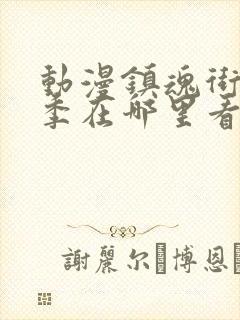 動漫鎮魂街
季在哪里看
謝麗尔·博恩